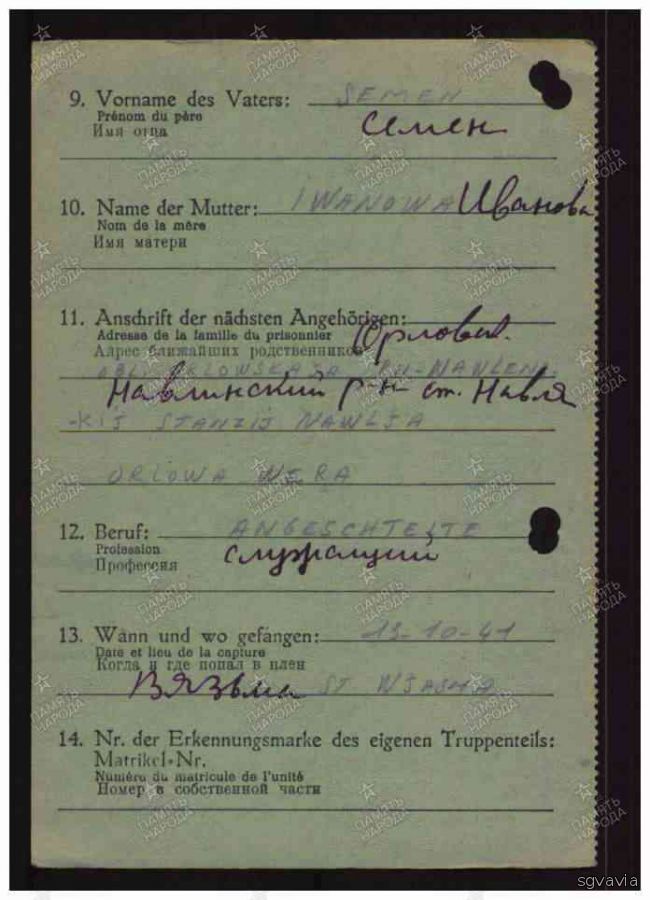 9. Vorname des Vaters: SEMEN
Prénom du père
Имя отца Семен
10. Name der Mutter: IWANOWA Иванова
Nom de la mère
Имя матери
11. Anschrift der nächsten Angehörigen:
Adresse de la famille du prisonnier Орловск.
Адрес ближайших родственников
OBL. ORLOWSKAJA RN-NAWLENS
Навлинский р-н ст. Навля
-KIJ STANZIJ NAWLJA
ORLOWA WERA
12. Beruf: ANGESCHTELTE
Profession служащий
Профессия
13. Wann und wo gefangen: 13-10-41
Date et lieu de la capture
Когда и где попал в плен
Вязьма ST WJASMA
14. Nr. der Erkennungsmarke des eigenen Truppenteils:
Matrikel-Nr.
Numéro du matricule de l'unité
Номер в собственной части
ПАМЯТЬ НАРОДА
sgvavia